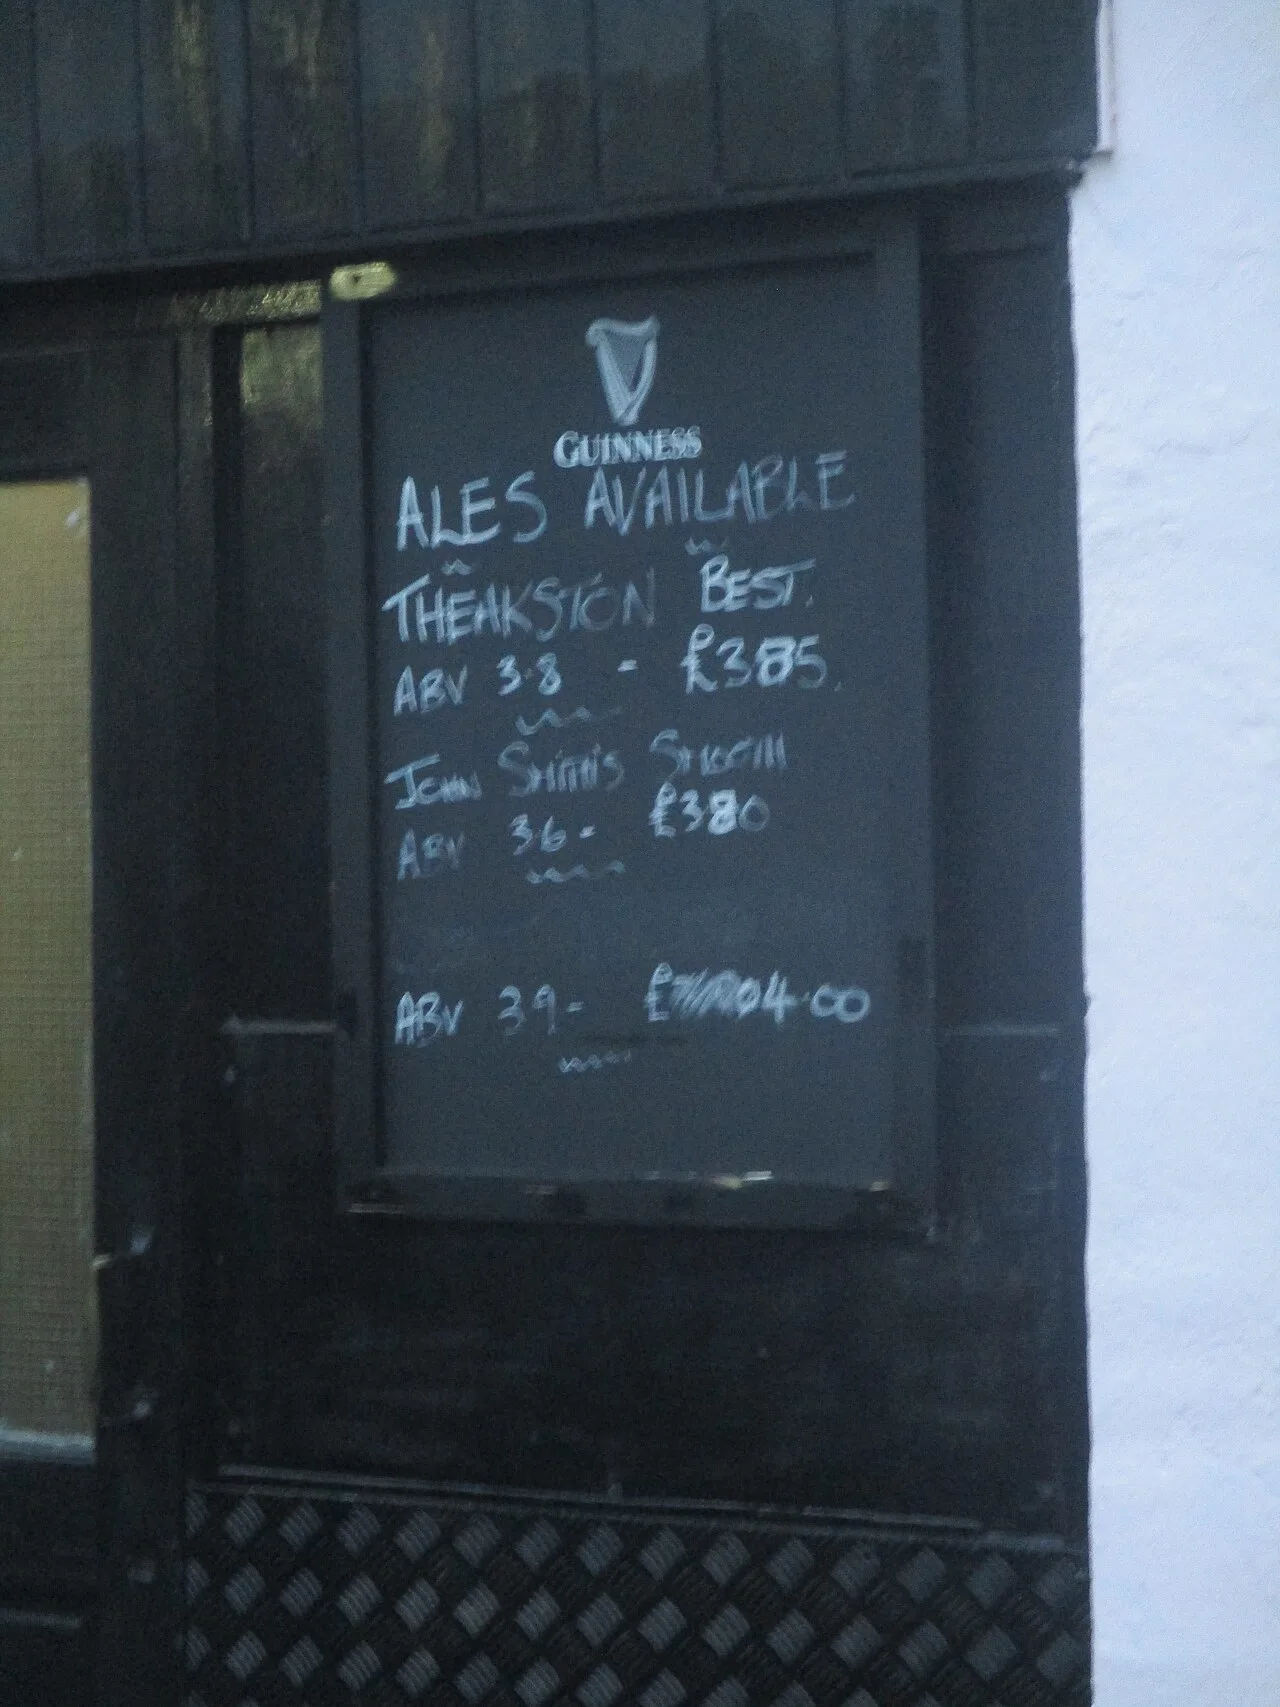 GUINNESS
ALES AVAILABLE
THEAKSTON BEST.
ABV 3.8 - £385.
JOHN SMITH'S SMOOTH
ABV 36- £380
ABV 39- £4.00